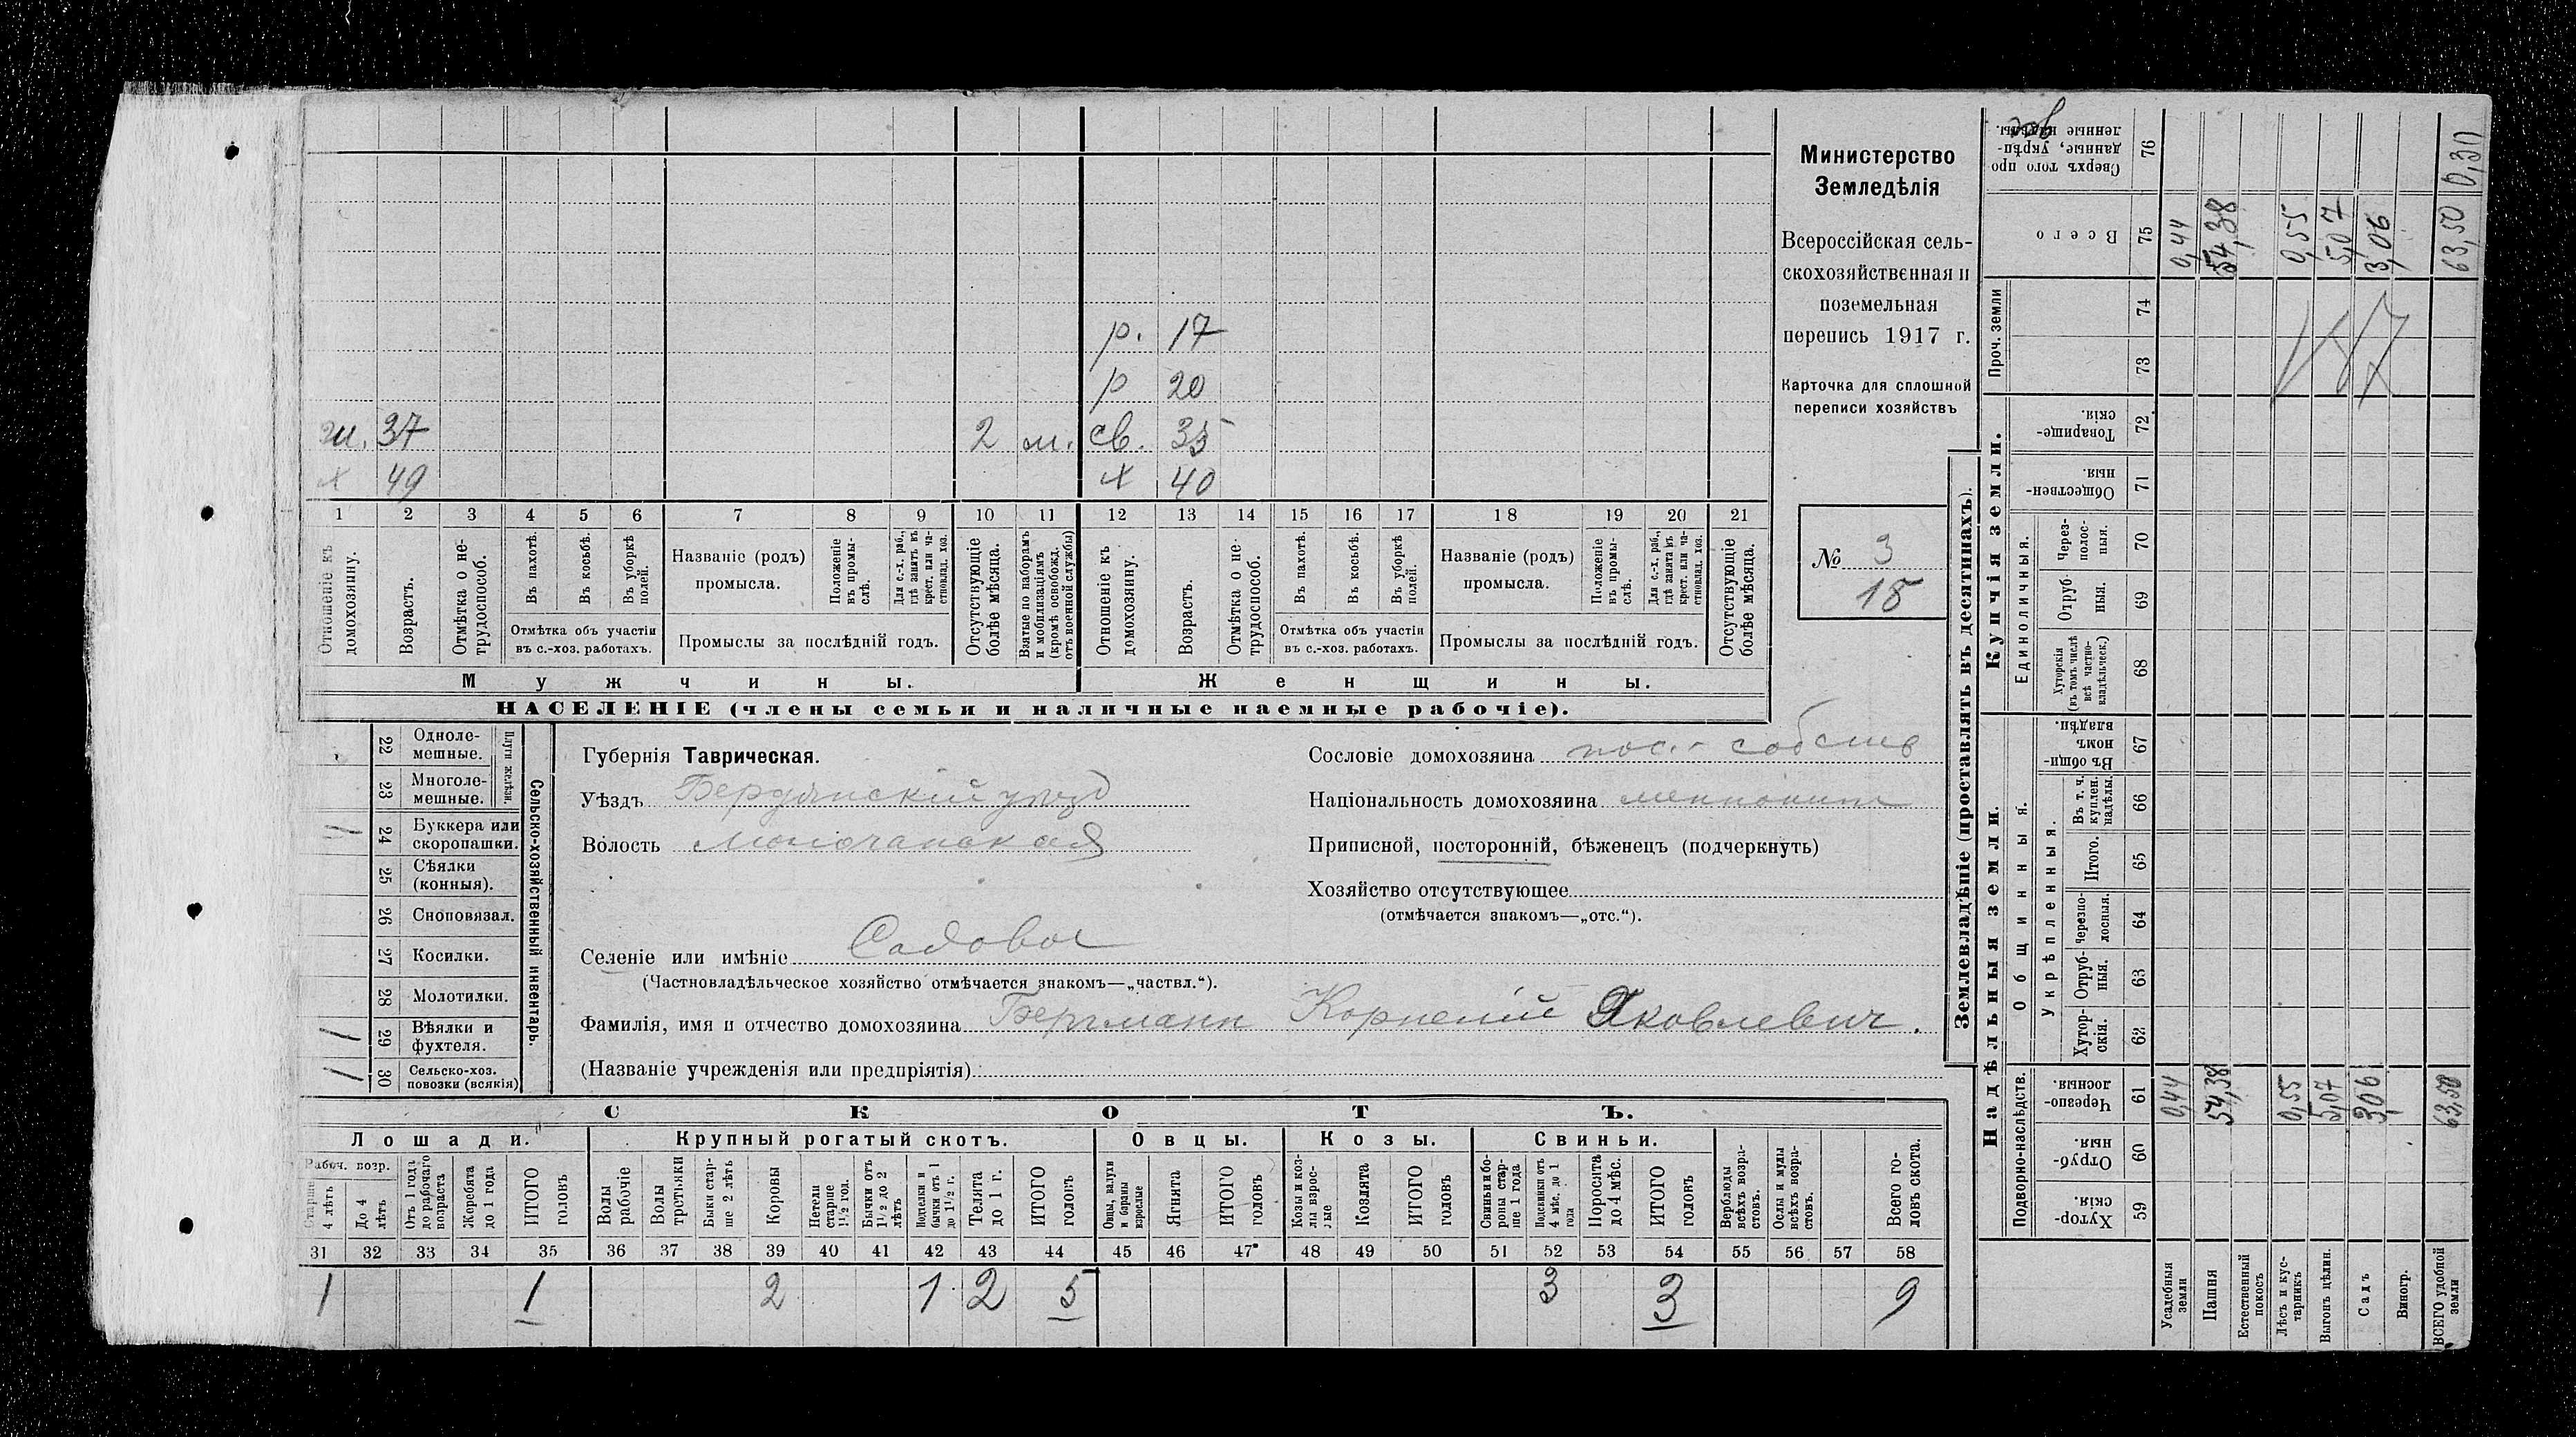 р. 17
р 20
ш. 37 2 м. св. 35
х 49 х 40
1 2 3 4 5 6 7 8 9 10 11 12 13 14 15 16 17 18 19 20 21
Отношеніе къ домохозяину.
Возрастъ.
Отмѣтка о не-
трудоспособ.
Въ пахотѣ.
Въ косьбѣ.
Въ уборкѣ
полей.
Отмѣтка объ участіи
въ с.-хоз. работахъ.
Названіе (родъ)
промысла.
Положеніе
въ промы-
слѣ.
Для с.-х. раб.,
гдѣ занятъ въ
крест. или ча-
стновлад. хоз.
Промыслы за послѣдній годъ.
Отсутствующіе
болѣе мѣсяца.
Взятые по наборамъ
и мобилизаціямъ
(кромѣ освобожд.
отъ военной службы)
Отношеніе къ
домохозяину.
Возрастъ.
Отмѣтка о не-
трудоспособ.
Въ пахотѣ.
Въ косьбѣ.
Въ уборкѣ
полей.
Отмѣтка объ участіи
въ с.-хоз. работахъ.
Названіе (родъ)
промысла.
Положеніе
въ промы-
слѣ.
Для с.-х. раб.,
гдѣ занята въ
крест. или ча-
стновлад. хоз.
Промыслы за послѣдній годъ.
Отсутствующіе
болѣе мѣсяца.
Мужчины. Женщины.
НАСЕЛЕНІЕ (члены семьи и наличные наемные рабочіе).
Министерство
Земледѣлія
Всероссійская сель-
скохозяйственная и
поземельная
перепись 1917 г.
Карточка для сплошной
переписи хозяйствъ
№ 3
18
22 Одноле-
мешные.
23 Многоле-
мешные.
Плуги желѣзн.
1 24 Буккера или
скоропашки.
25 Сѣялки
(конныя).
26 Сноповязал.
27 Косилки.
28 Молотилки.
1 1 29 Вѣялки и
фухтеля.
1 30 Сельско-хоз.
повозки (всякія)
Сельско-хозяйственный инвентарь.
Губернія Таврическая.
Уѣздъ Бердянскій уѣзд
Волость Молочанская
Селеніе или имѣніе Садовое
(Частновладѣльческое хозяйство отмѣчается знакомъ—„частвл.“).
Фамилія, имя и отчество домохозяина Бергманн Корнелій Яковлевич.
(Названіе учрежденія или предпріятія)
Сословіе домохозяина пос.- собств
Національность домохозяина меннонит
Приписной, посторонній, бѣженецъ (подчеркнуть)
Хозяйство отсутствующее
(отмѣчается знакомъ—„отс.“).
СКОТЪ.
Лошади. Крупный рогатый скотъ. Овцы. Козы. Свиньи.
Рабоч. возр.
Старше
4 лѣтъ
До 4
лѣтъ
Отъ 1 года
до рабочаго
возраста
Жеребята
до 1 года
ИТОГО
головъ
Волы
рабочіе
Волы
третьяки
Быки стар-
ше 2 лѣтъ
Коровы
Нетели
старше
1½ год.
Бычки отъ
1½ до 2
лѣтъ
Подтелки и
бычки отъ 1
до 1½ г.
Телята
до 1 г.
ИТОГО
головъ
Овцы, валухи
и бараны
взрослые
Ягнята
ИТОГО
головъ
Козы и коз-
лы взрос-
лые
Козлята
ИТОГО
головъ
Свиньи и бо-
ровы стар-
ше 1 года
Подсвинки отъ
4 мѣс. до 1
года
Поросята
до 4 мѣс.
ИТОГО
головъ
Верблюды
всѣхъ возра-
стовъ.
Ослы и мулы
всѣхъ возра-
стовъ.
Всего го-
ловъ скота.
31 32 33 34 35 36 37 38 39 40 41 42 43 44 45 46 47 48 49 50 51 52 53 54 55 56 57 58
1 1 2 1 2 5 3 3 9
Землевладѣніе (проставлять въ десятинахъ).
Надѣльныя земли. Купчія земли. Проч. земли
Подворно-наслѣдств.
Общинныя.
Укрѣпленныя.
Единоличныя.
Хутор-
скія. 59
Отруб-
ныя. 60
Черезпо-
лосныя. 61
Хутор-
скія. 62
Отруб-
ныя. 63
Черезпо-
лосныя. 64
Итого. 65
Въ т. ч.
куплен.
надѣлы. 66
Въ общи-
номъ
владѣн. 67
Хуторскія
(въ томъ числѣ
всѣ частно-
владѣльческ.) 68
Отруб-
ныя. 69
Через-
полос-
ныя. 70
Обществен-
ныя. 71
Товарище-
скія. 72
73 74
Всего 75
Сверхъ того про-
данные, укрѣп-
ленные надѣлы. 76
Усадебныя
земли 0,44 0,44
Пашня 54,38 54,38
Естественный
покосъ
Лѣсъ и кус-
тарникъ 0,55 0,55
Выгонъ цѣлин. 5,07 5,07
Садъ 3,06 3,06
Виногр.
ВСЕГО удобной
земли 63,50 63,50 0,30